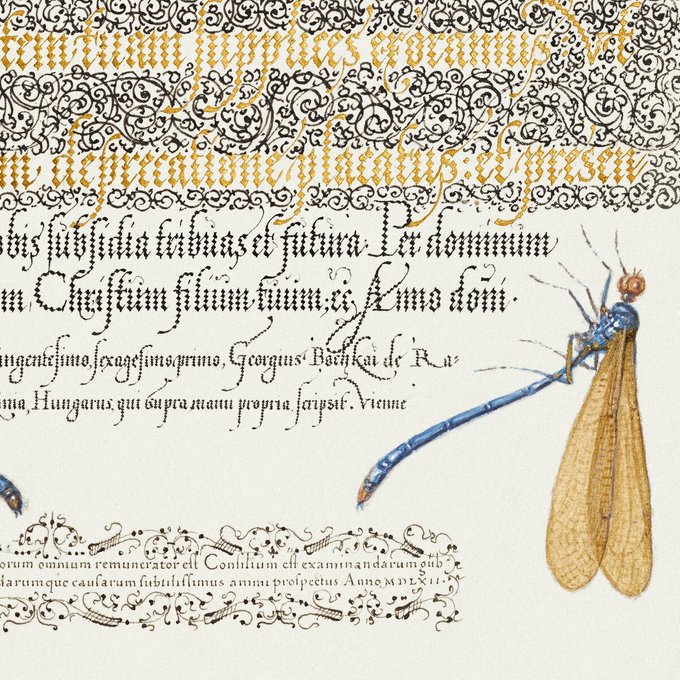 rem tuam supplices exoramus: Vt
deprecatione placatus: et presen
obis subsidia tribuas et futura. Per dominum
m, Christum filium tuum, etc Anno domi.
ingentesimo, sexagesimo, primo, Georgius Bochkai de Ra=
nia, Hungarus, qui supra manu propria scripsit. Vienne
orum omnium remunerator est Consilium est examinandarum sub
darumque causarum subtilissimus animi prospectus Anno MDLXII